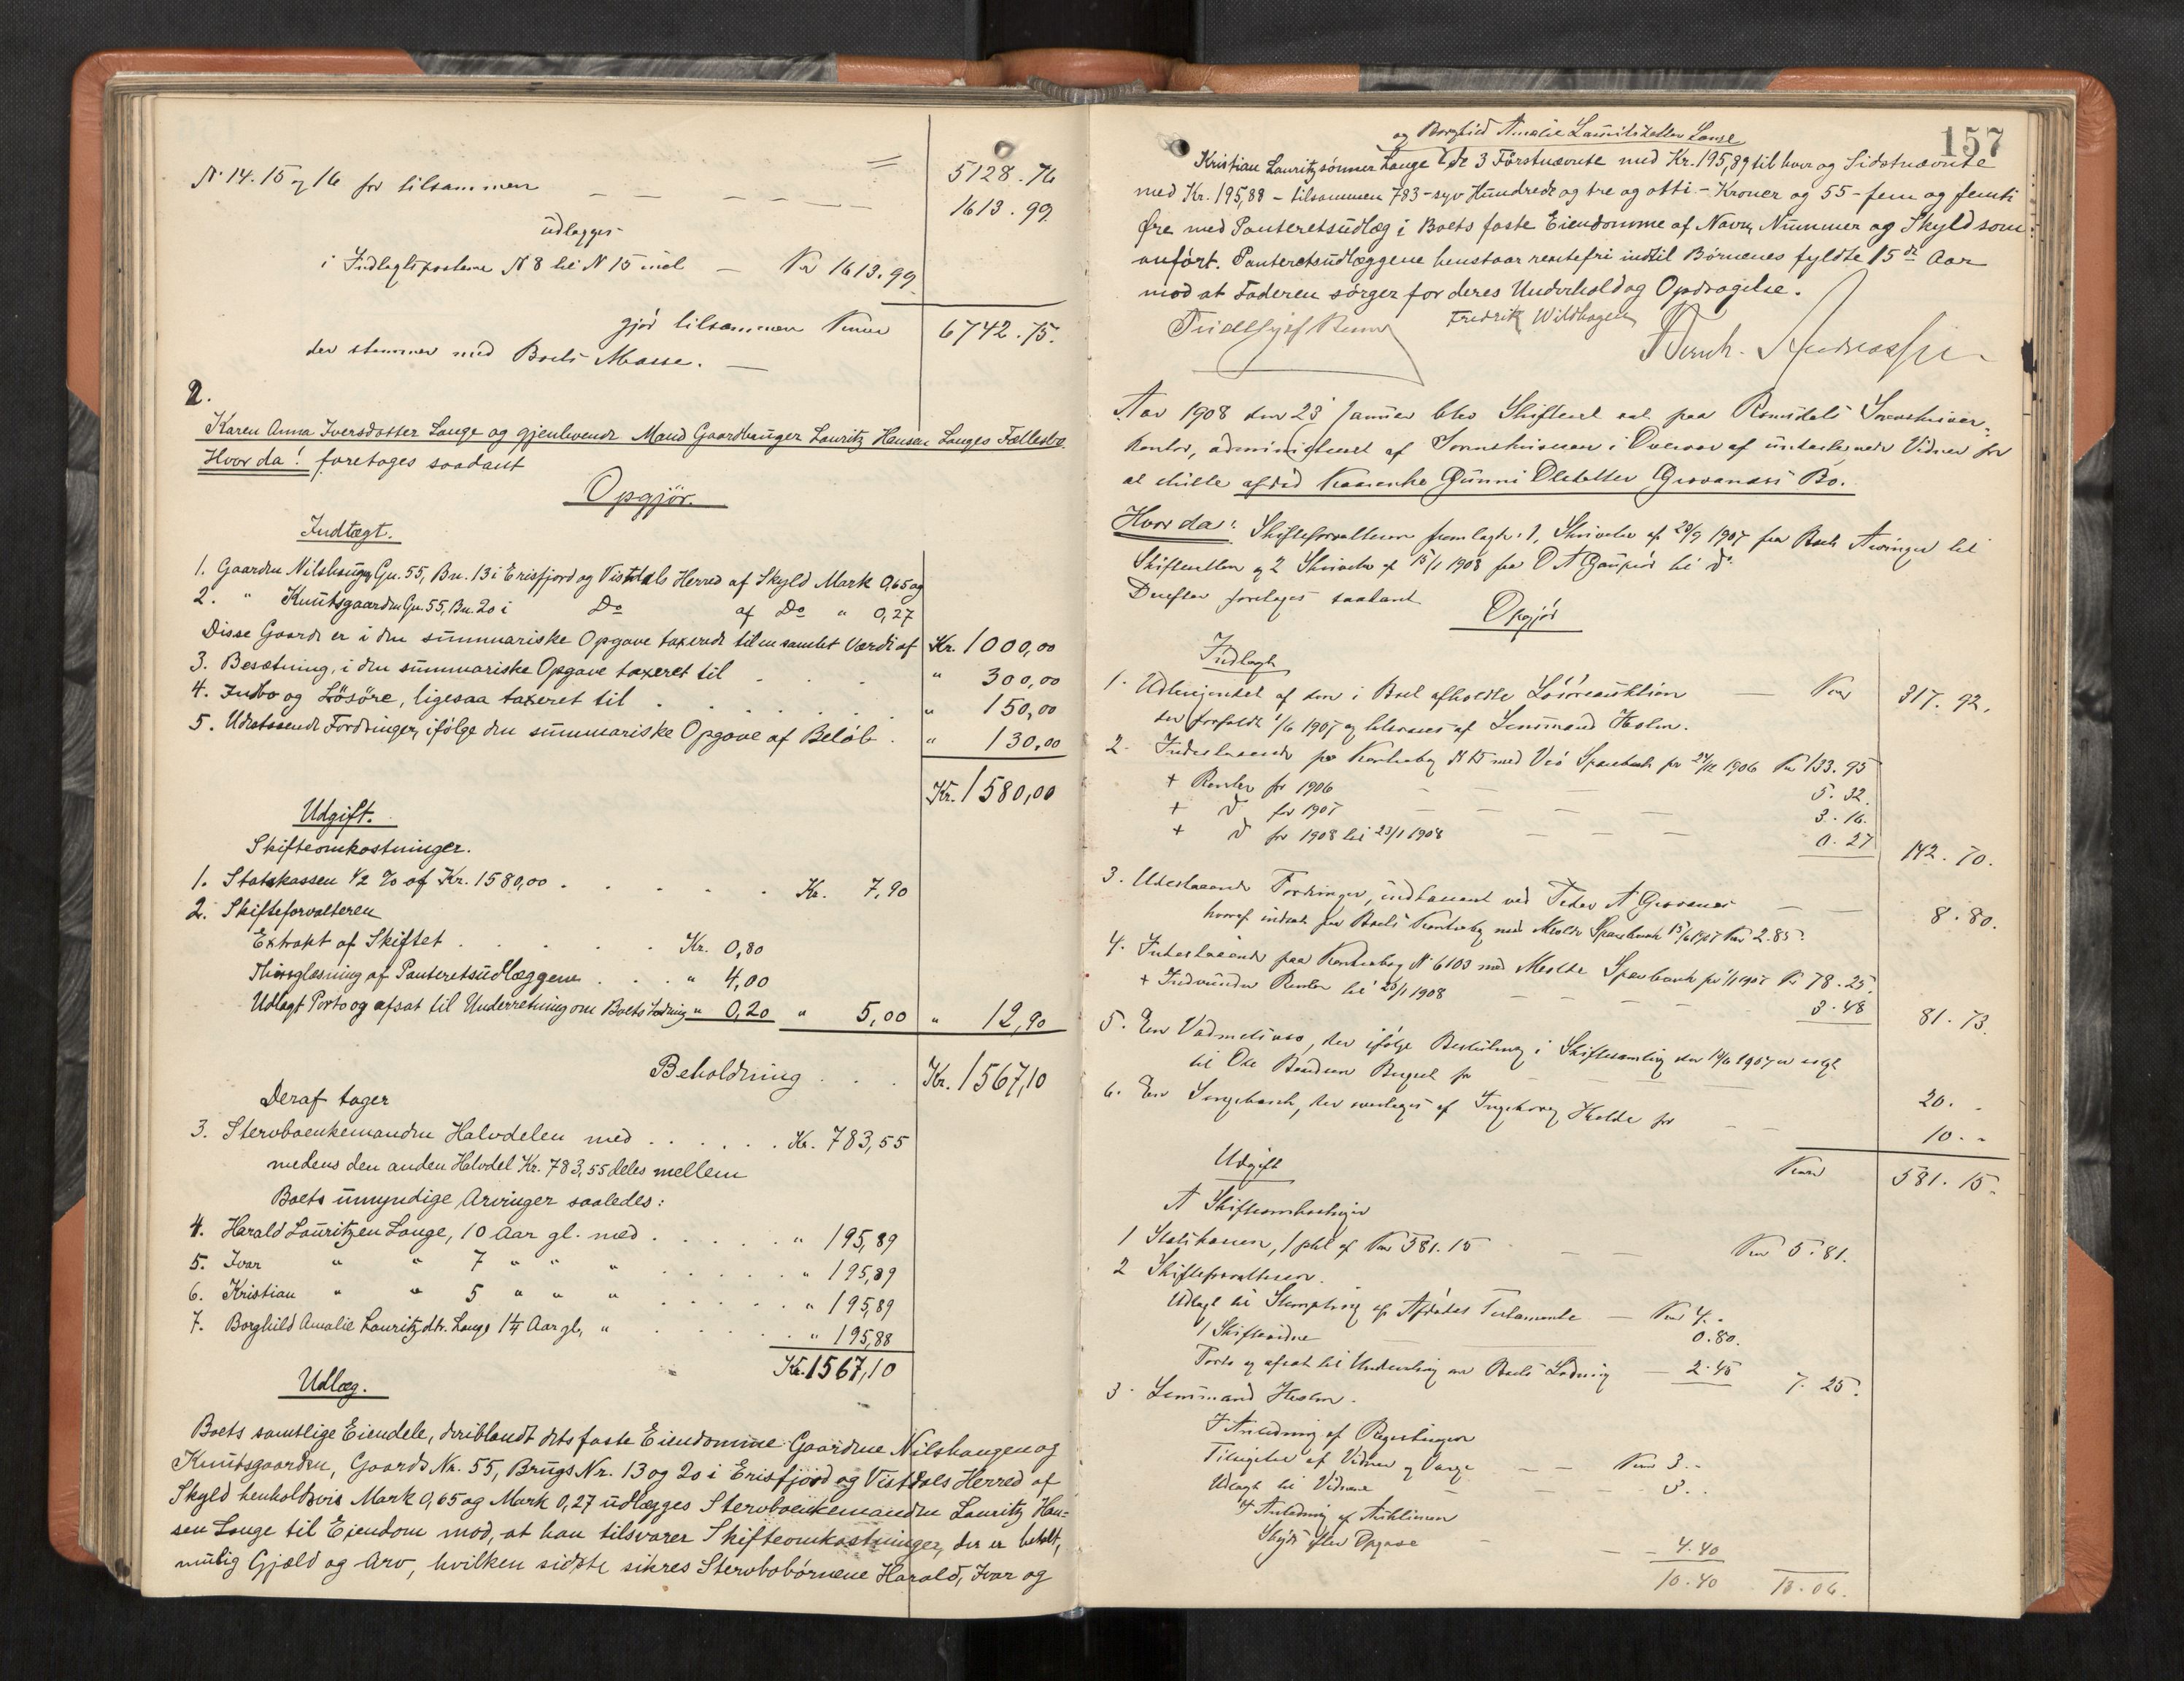 5128.76
N. 14. 15 og 16 for tilsammen 1613.99
udlægges
i Indtægtsposterne N 8 til N 15 incl — Kr 1613.99
gjør tilsammen Kroner 6742.75.
der stemmer med Boets Masse.
2.
Karen Anna Iversdatter Lange og gjenlevende Mand Gaardbruger Lauritz Hansen Langes Fællesbo
Hvor da! foretoges saadant
Opgjør.
Indtægt.
1. Gaarden Nilshaugen, Gn. 55, Bn. 13 i Erisfjord og Vistdals Herred af Skyld Mark 0,65 og
2. " Knutsgaarden Gn. 55, Bn. 20 i Do af Do " 0,27
Disse Gaarde er i den summariske Opgave taxerede til en samlet Værdi af Kr. 1000,00
3. Besætning, i den summariske Opgave taxeret til " 300,00
4. Indbo og Løsøre, ligesaa taxeret til " 150,00
5. Udestaaende Fordringer, ifølge den summariske Opgave af Beløb " 130,00
Kr. 1580,00
Udgift.
Skifteomkostninger.
1. Statskassen ½ % af Kr. 1580,00 Kr. 7,90
2. Skifteforvalteren
Extrakt af Skiftet Kr. 0,80
Thinglæsning af Panteretsudlæggene " 4,00
Udlagt Porto og afsat til Underretning om Boets Lodning " 0,20 " 5,00 " 12,90
Beholdning Kr. 1567,10
Deraf tager
3. Stervboenkemanden Halvdelen med Kr. 783,55
medens den anden Halvdel Kr. 783,55 deles mellem
Boets umyndige Arvinger saaledes:
4. Harald Lauritzen Lange, 10 Aar gl. med " 195,89
5. Ivar " " 7 " " " " 195,89
6. Kristian " " 5 " " " " 195,89
7. Borghild Amalie Lauritzdtr. Lange 1¼ Aar gl, " " 195,88
Kr. 1567,10
Udlæg.
Boets samtlige Eiendele, deriblandt dets faste Eiendomme Gaardene Nilshaugen og
Knutsgaarden, Gaards Nr. 55, Brugs Nr. 13 og 20 i Erisfjord og Vistdals Herred af
Skyld henholdsvis Mark 0,65 og Mark 0,27 udlægges Stervboenkemanden Lauritz Han-
sen Lange til Eiendom mod, at han tilsvarer Skifteomkostninger, der er betalt,
mulig Gjæld og Arv, hvilken sidste sikres Stervbobørnene Harald, Ivar og
157
og Borghild Amalie Lauritzdatter Lange
Kristian Lauritzsønner Lange de 3 Førstnævnte med Kr. 195,89 til hver og Sidstnævnte
med Kr. 195,88 – tilsammen 783 – syv Hundrede og tre og otti – Kroner og 55 – fem og femti
Øre med Panteretsudlæg i Boets faste Eiendomme af Navn, Nummer og Skyld som
anført. Panteretsudlæggene henstaar rentefri indtil Børnenes fyldte 15de Aar
mod at Faderen sørger for deres Underhold og Opdragelse.
Fredrik Wildhagen
Aar 1908 den 23 Januar blev Skifteret sat paa Romsdals Sorenskriver-
kontor, administreret af Sorenskriveren i Overvær af undertegnede Vidner for
at slutte afdød Gunni Olsdatter Grovanæs Bo.
Hvor da: Skifteforvalteren fremlagte: 1, Skrivelse af 20/9 1907 fra Boets Arvinger til
Skifteretten og 2 Skrivelse af 15/1 1908 fra O A til do
Derefter foretoges saadant
Opgjør
Indtægt
1. Udbringendet af den i Boet afholdte Løsøreauktion — Kroner 317.92.
der forfaldt 1/6 1907 og tilsvares af Lensmand Holm.
2. Indestaaende paa Kontrabog N 15 med Veø Sparebank pr 24/12 1906 Kr 133.95
+ Renter for 1906 5.32.
+ do for 1907 3.16.
+ do for 1908 til 23/1 1908 0.27 142.70.
3. Udestaaende Fordringer, indkasseret ved Peder A Grovanæs 8.80.
hvoraf indsat paa Boets Kontrabog med Molde Sparebank 15/6 1907 Kr 2.85.
4. Indestaaende paa Kontrabog N 6103 med Molde Sparebank pr 1/1 1907 Kr 78.25.
+ Indvundne Renter til 23/1 1908 3.48 81.73.
5. En , der ifølge Beslutning i Skiftesamling den 19/6 1907 er solgt
til Ole for 20. "
6. En , der overtages af Ingeborg for 10. "
Kroner 581.15.
Udgift
A Skifteomkostninger
1 Statskassen, 1 pct af Kr 581.15 Kr 5.81.
2 Skifteforvalteren.
Udlagt til Stempling af Afdødes Testamente — Kr 4. "
1 Skiftevidne 0.80.
Porto og afsat til Underretning om Boets Lodning 2.45 7.25.
3. Lensmand Holm.
I Anledning af Registreringen
Tilsigelse af Vidner og Værge Kr 3. "
Udlagt til Vidnerne 3. "
I Anledning af Auktionen
Skyds efter Opgave 4.40
10.40 13.06.